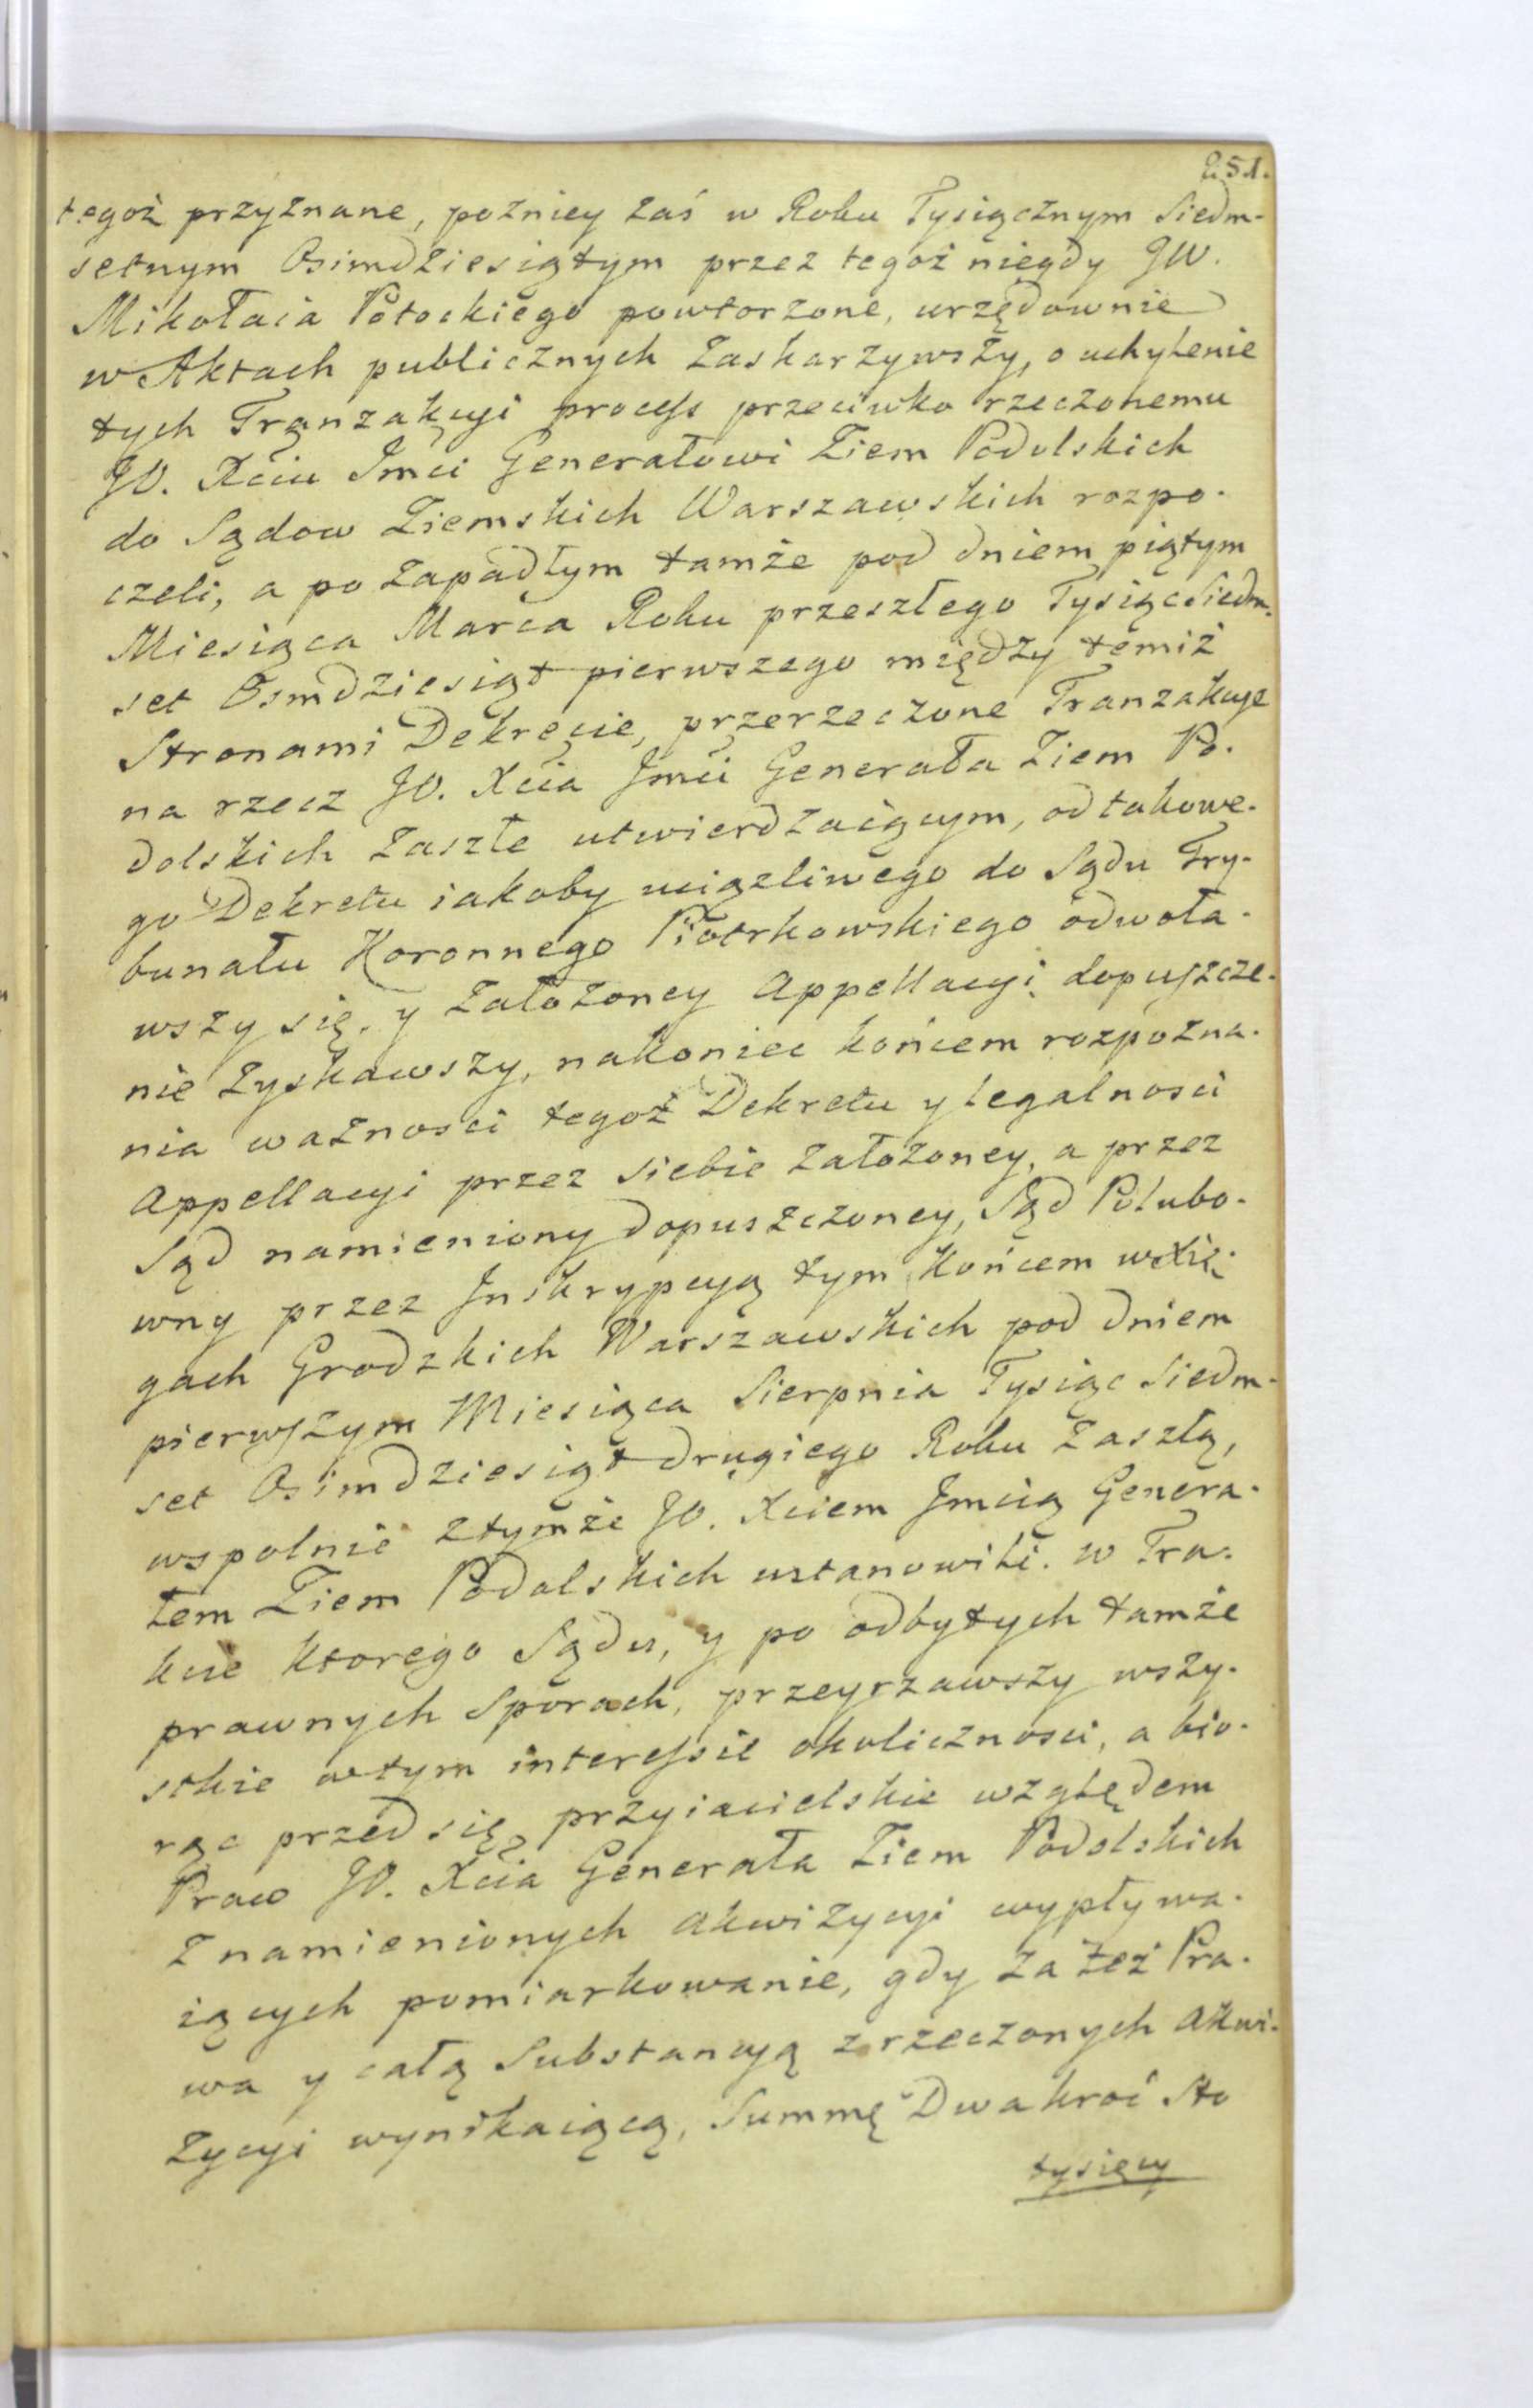 251.
tegoż przyznane, pozniey zaś w Roku Tysiącznym Siedm-
setnym Osimdziesiątym przez tegoż niegdy JW.
Mikołaia Potockiego powtorzone, urzędownie
w Aktach publicznych zaskarzywszy, o uchylenie
tych Tranzakcyi process przeciwko rzeczonemu
JO. Xciu Jmci Generałowi Ziem Podolskich
do Sądow Ziemskich Warszawskich rozpo-
czeli, a po zapadłym tamże pod dniem piątym
Miesiąca Marca Roku przeszłego Tysiąc Siedm-
set Osmdziesiąt pierwszego między temiż
Stronami Dekrecie, przerzeczone Tranzakcye
na rzecz JO. Xcia Jmci Generała Ziem Po-
dolskich zaszłe utwierdzaiącym, od takowe-
go Dekretu iakoby uciązliwego do Sądu Try-
bunału Koronnego Piotrkowskiego odwoła-
wszy się, y założoney Appellacyi dopuszcze-
nie zyskawszy, nakoniec końcem rozpozna-
nia ważnosci tegoż Dekretu y legalnosci
Appellacyi przez siebie założoney, a przez
Sąd namieniony dopuszczoney, Sąd Polubo-
wny przez Inskrypcyą tym końcem w Xię-
gach Grodzkich Warszawskich pod dniem
pierwszym Miesiąca Sierpnia Tysiąc Siedm-
set Osimdziesiąt drugiego Roku zaszłą,
wspolnie z tymże JO. Xciem Jmcią Genera-
łem Ziem Podolskich ustanowili. w Tra-
kcie ktorego Sądu, y po odbytych tamże
prawnych sporach, przeyrzawszy wszy-
stkie w tym interessie okolicznosci, a bio-
rąc przed się przyiacielskie względem
Praw JO. Xcia Generała Ziem Podolskich
z namienionych Akwizycyi wypływa-
iących pomiarkowanie, gdy za też Pra-
wa y całą Substancyą z rzeczonych Akwi-
zycyi wynikaiącą, Summę Dwakroć Sto
tysięcy